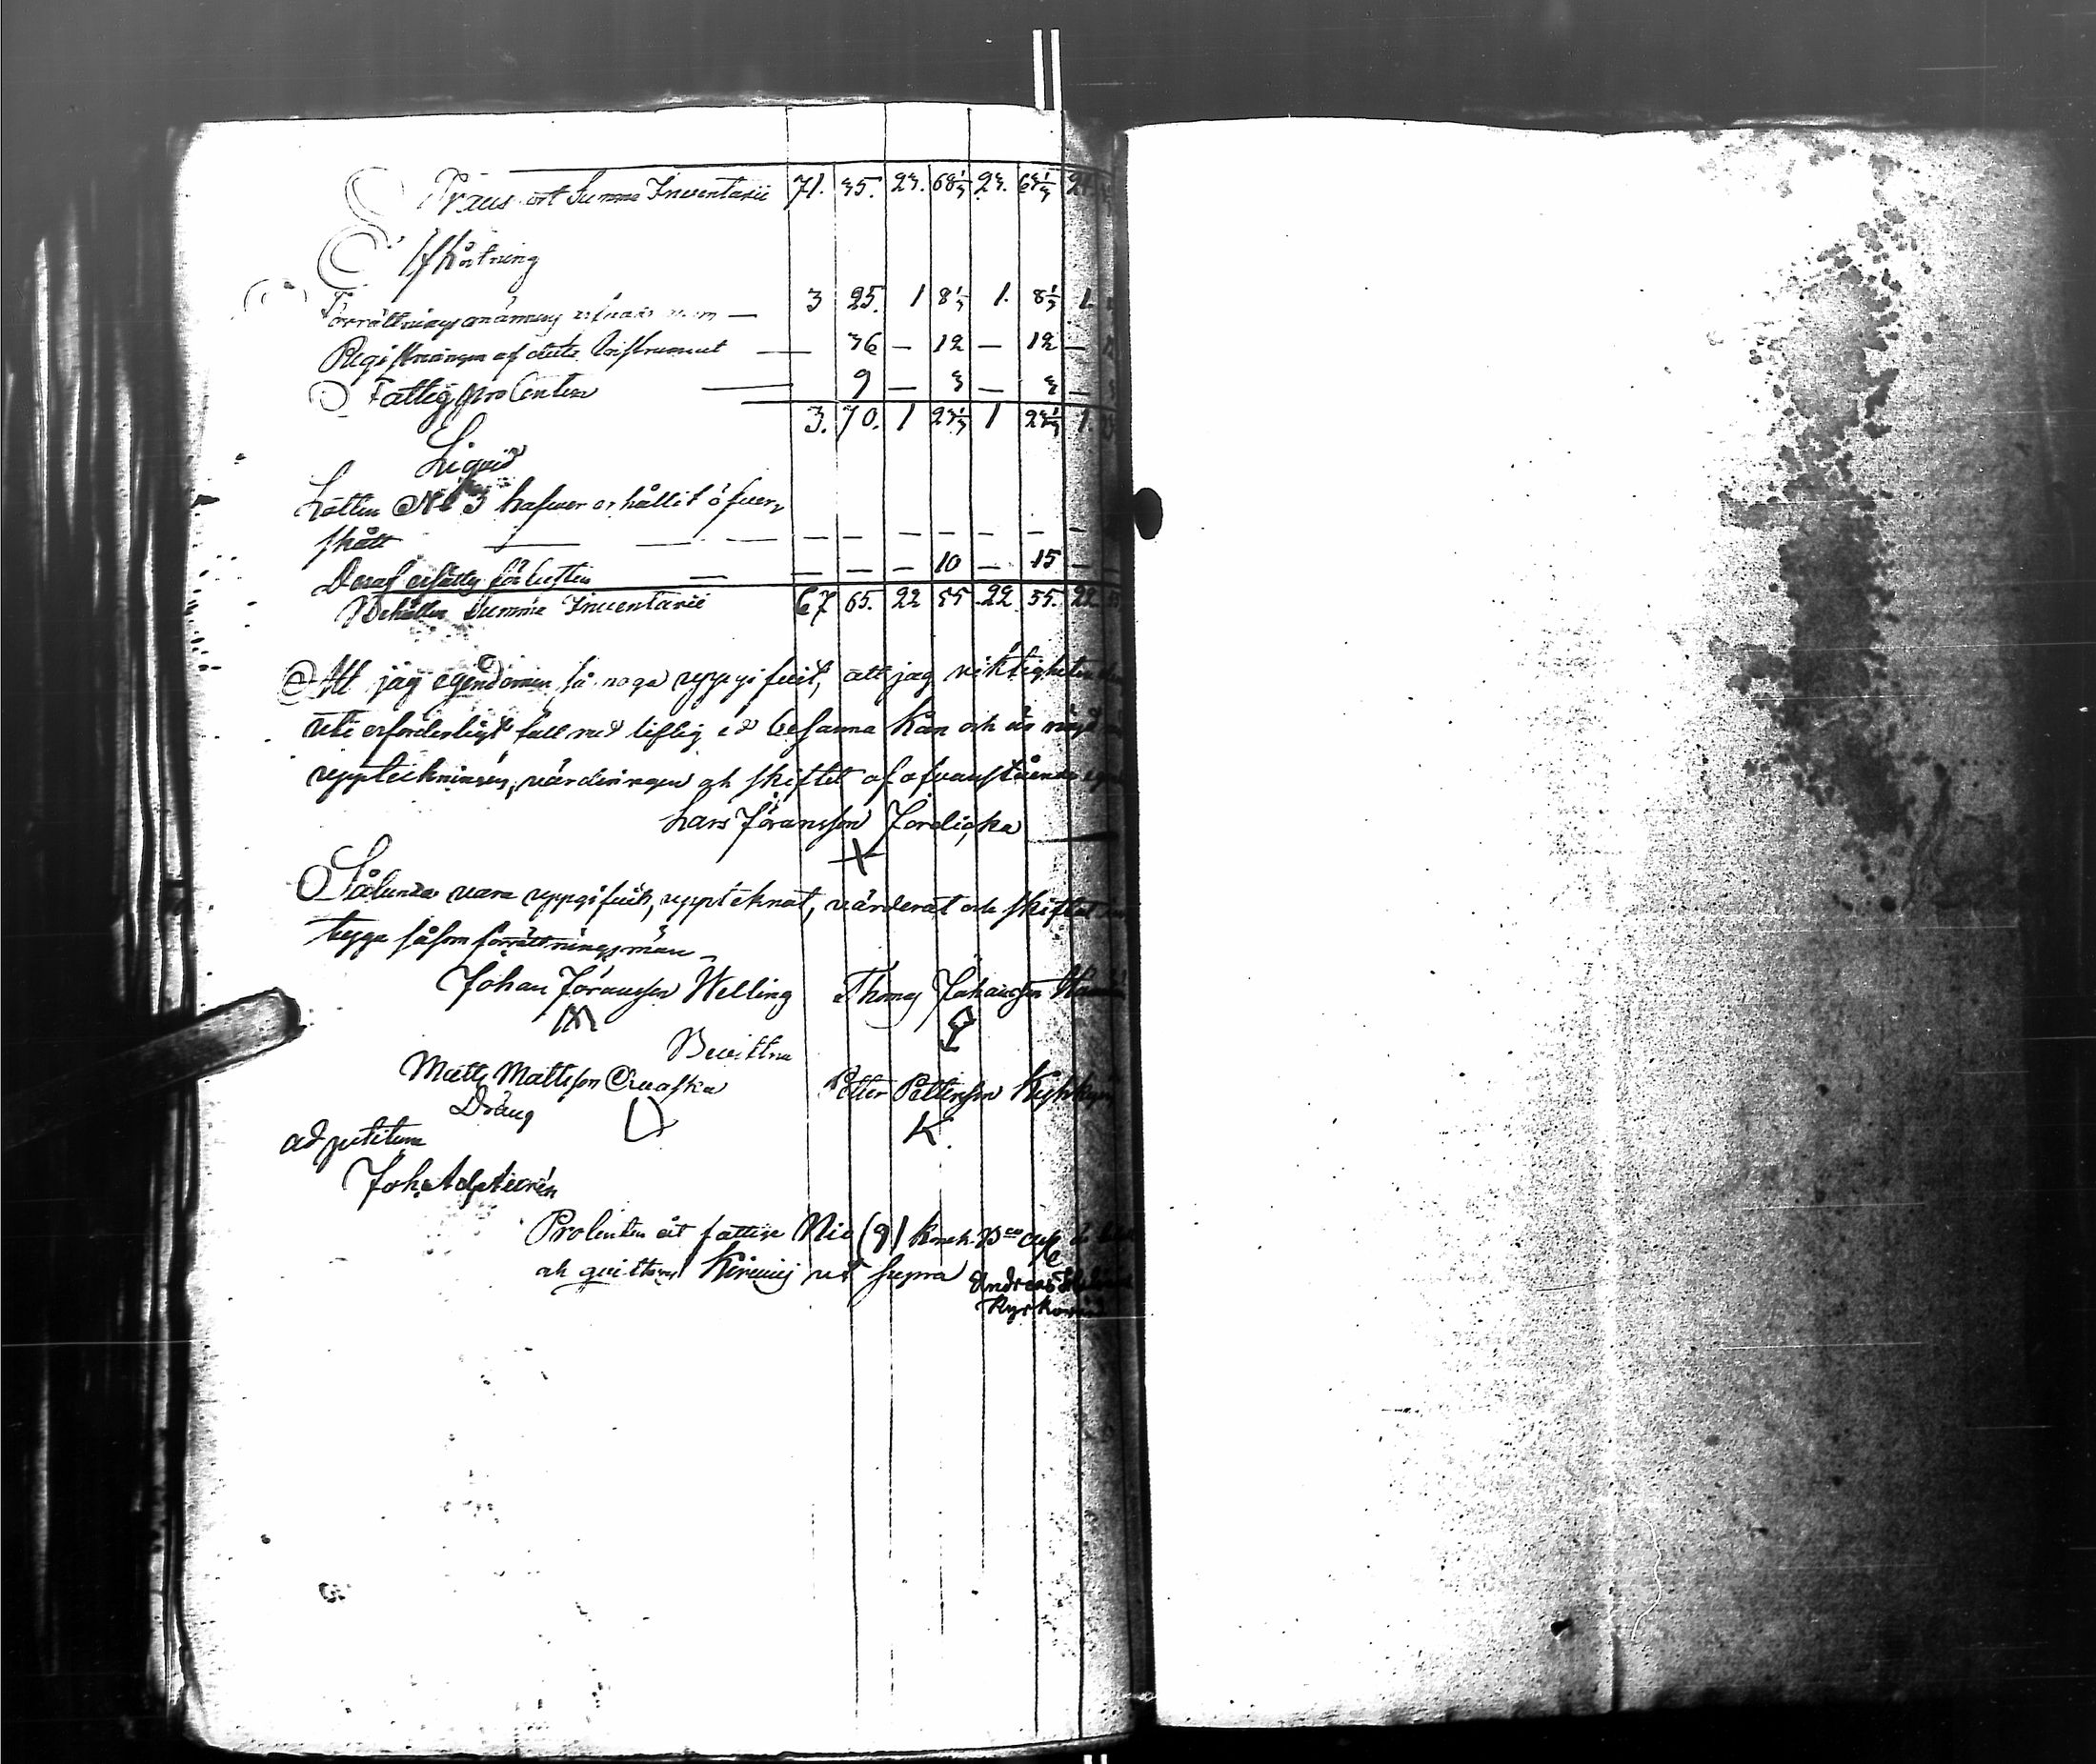 Transport Summa Inventarii 71. 35. 23. 68⅓ 23. 63⅓ 2
Afkortning
Förrättningsmännens — 3 25. 1 8⅓ 1. 8⅓ 1.
Registreringen af detta Instrument — 36 — 12 — 12 —
Fattig proCenten — 9 — 3 — 3 —
3. 70. 1 23⅓ 1 23⅓ 1.
Liquid
Lotten No 3 hafwer erhållit öfwer
skått — — — — — — — — —
Deraf ersättes förlusten — — — — 10 — 15 — —
Behållen Summa Inventarii 67 65. 22 55 22 55. 22
Att jag egendomen så noga uppgifvit, att jag riktigheten
uti erforderligt fall med liflig ed besanna kan och är nöjd
uppteckningen, värderingen och skiftet af ofvanstående
Lars Jöransson Jordicka
X
Sålunda vara uppgifvit, upptecknat, värderat och skiftat
tygga såsom förrättningsmän
Johan Jöransson Welling Thomas Johansson
Bevittna
Matts Mattsson Petter Pettersson
Dräng
K.
ad petitum
Joh.
ProCenten åt fattige Nio (9) kopek
och quitteras ut supra Andreas